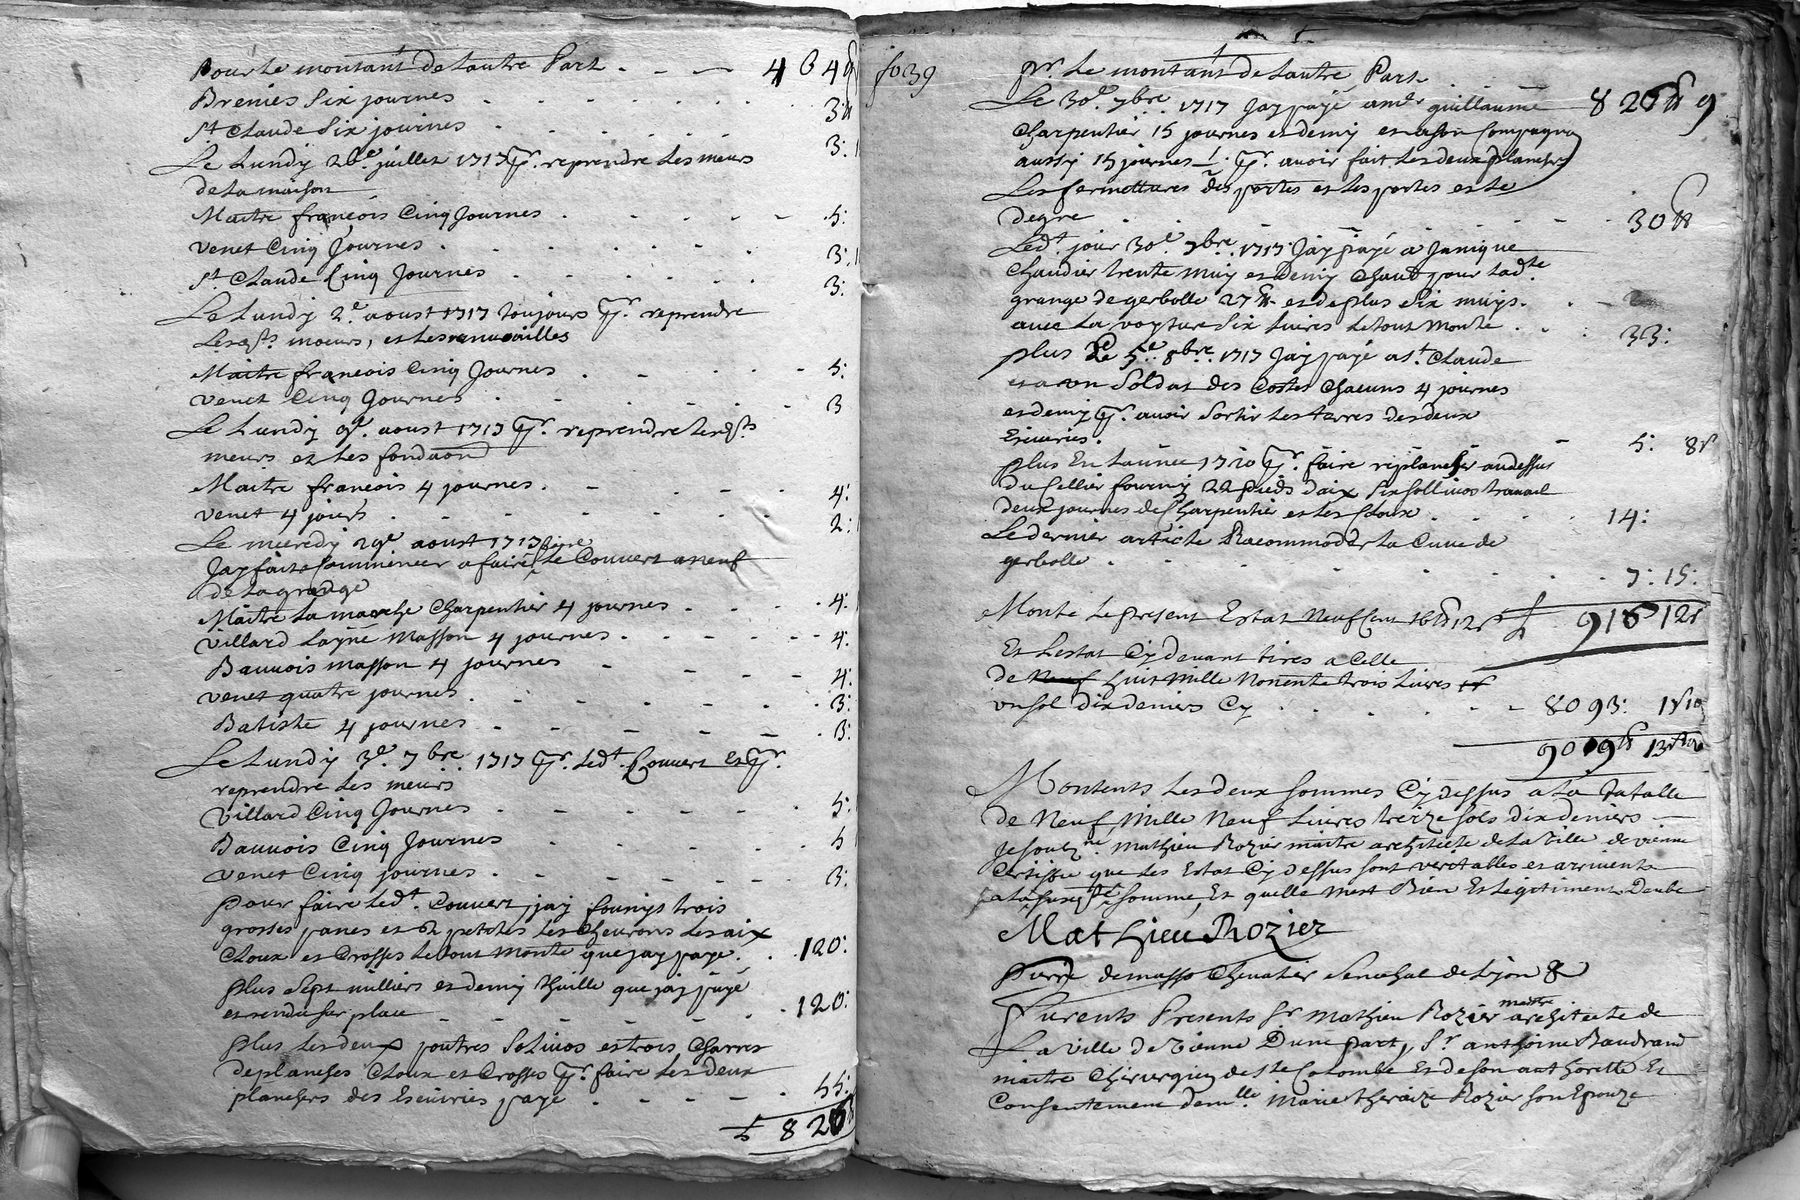 Pour Le montant De Lautre Part . . . 4 6 4
Brenies Six journes . . . 3
St Claude Six journes . . . 3:
Le Lundy 26e juillet 1717 pr. reprendre Les meurs
de La maison
Maitre francois Cinq Journes . . . 5:
venet Cinq Journes . . . 3:
St Claude Cinq Journes . . . 3:
Le Lundy 2e aoust 1717 toujours pr. reprendre
Lesdts moeurs, et Les
Maitre francois Cinq Journes . . . 5:
venet Cinq Journes . . . 3
Le Lundy 9e. aoust 1717 pr. reprendre Lesdts
meurs et Les fondaon
Maitre francois 4 journes . . . 4:
venet 4 jours . . . 2:
Le mecredy 29e aoust 1717
Jay fait Commencer a faire faire Le Couvert a neuf
de La grange
Maitre La marche Charpentier 4 journes . . . 4:
Villard Layné Masson 4 journes . . . 4:
Bauvois masson 4 journes . . . 4:
venet quatre journes . . . 3:
Batiste 4 journes . . . 3:
Le Lundy 3e. 7bre. 1717 pr. Ledt. Couvert et pr.
reprendre Les meurs
Villard Cinq Journes . . . 5:
Bauvois Cinq Journes . . . 5
venet Cinq journes . . . 3:
pour faire Ledt. Couvert, jay fournys trois
grosses panes et petittes Les chevrons Les aix
Cloux et Crosses Le tout monte que jay paye . . . 120:
plus Sept milliers et demy thuille que jay payé
et rendu sur place . . . 120:
plus Les deux poutres Solivos et trois Charres
de planches Cloux et Crosses pr. faire Les deux
planchers des Escuries payé . . . 55:
826
fo 39
pr. Le montant De Lautre Part
Le 30e. 7bre. 1717 Jay payé a mtr guillaume 826 lt 9
Charpentier 15 journes et demy et a son Compagnon
aussy 15 journes pr. avoir fait Les deux planchers
Les fermettures des portes et Les portes et Le
degre . . . 30 lt
Ledt. jour 30e. 7bre. 1717 Jay payé a Janique
Chaudier trente muy et Demy Chaux pour Ladte
grange de gerbolle 27 lt et de plus Six muys .
avec La voyture Six Livres Le tout monte . . . 33:
plus Le 5e. 8bre. 1717 Jay payé a St. Claude
et a un Soldat des Costes Chacuns 4 journes
et demy pr. avoir Sortir Les terres des deux
Escuries . . . 5: 8s
plus En Lannee 1720 pr. faire replancher au dessus
du Cellier fourny 22 pieds daix Six Sollivos travail
deux journes de Charpentier et Les Cloux . . . 14:
Le dernier article Racommoder La Cuve de
gerbolle . . . 7: 15:
Monte Le present Estat Neuf Cent 16 lt 12s 916 12s
Et Lestat Cy devant tires a Celle
de Neuf huit Mille Nonente trois Livres
un sol dix deniers Cy . . . 8093: 1s 10
9009 lt 13s 10
Montents Les deux sommes Cy dessus a La Totalle
de Neuf Mille Neuf Livres treize sols dix deniers
Je soubzné. Mathieu Rozier maitre architecte de La Ville de vienne
Certiffie que Les Estat Cy dessus sont veritables et arrivents
a La susdte somme, Et quelle mest Bien Et Legitiment Deube
Mathieu Rozier
Pierre demasso Chevalier Senechal de Lyon &
Furents Presents Sr Mathieu Rozier maitre architecte de
La Ville de Vienne Dune part, Sr. anthoine Baudrand
maitre Chirurgien de Ste Colombe Et de son authorette Et
Consentement demlle. Marie theraize Rozier son Epouze